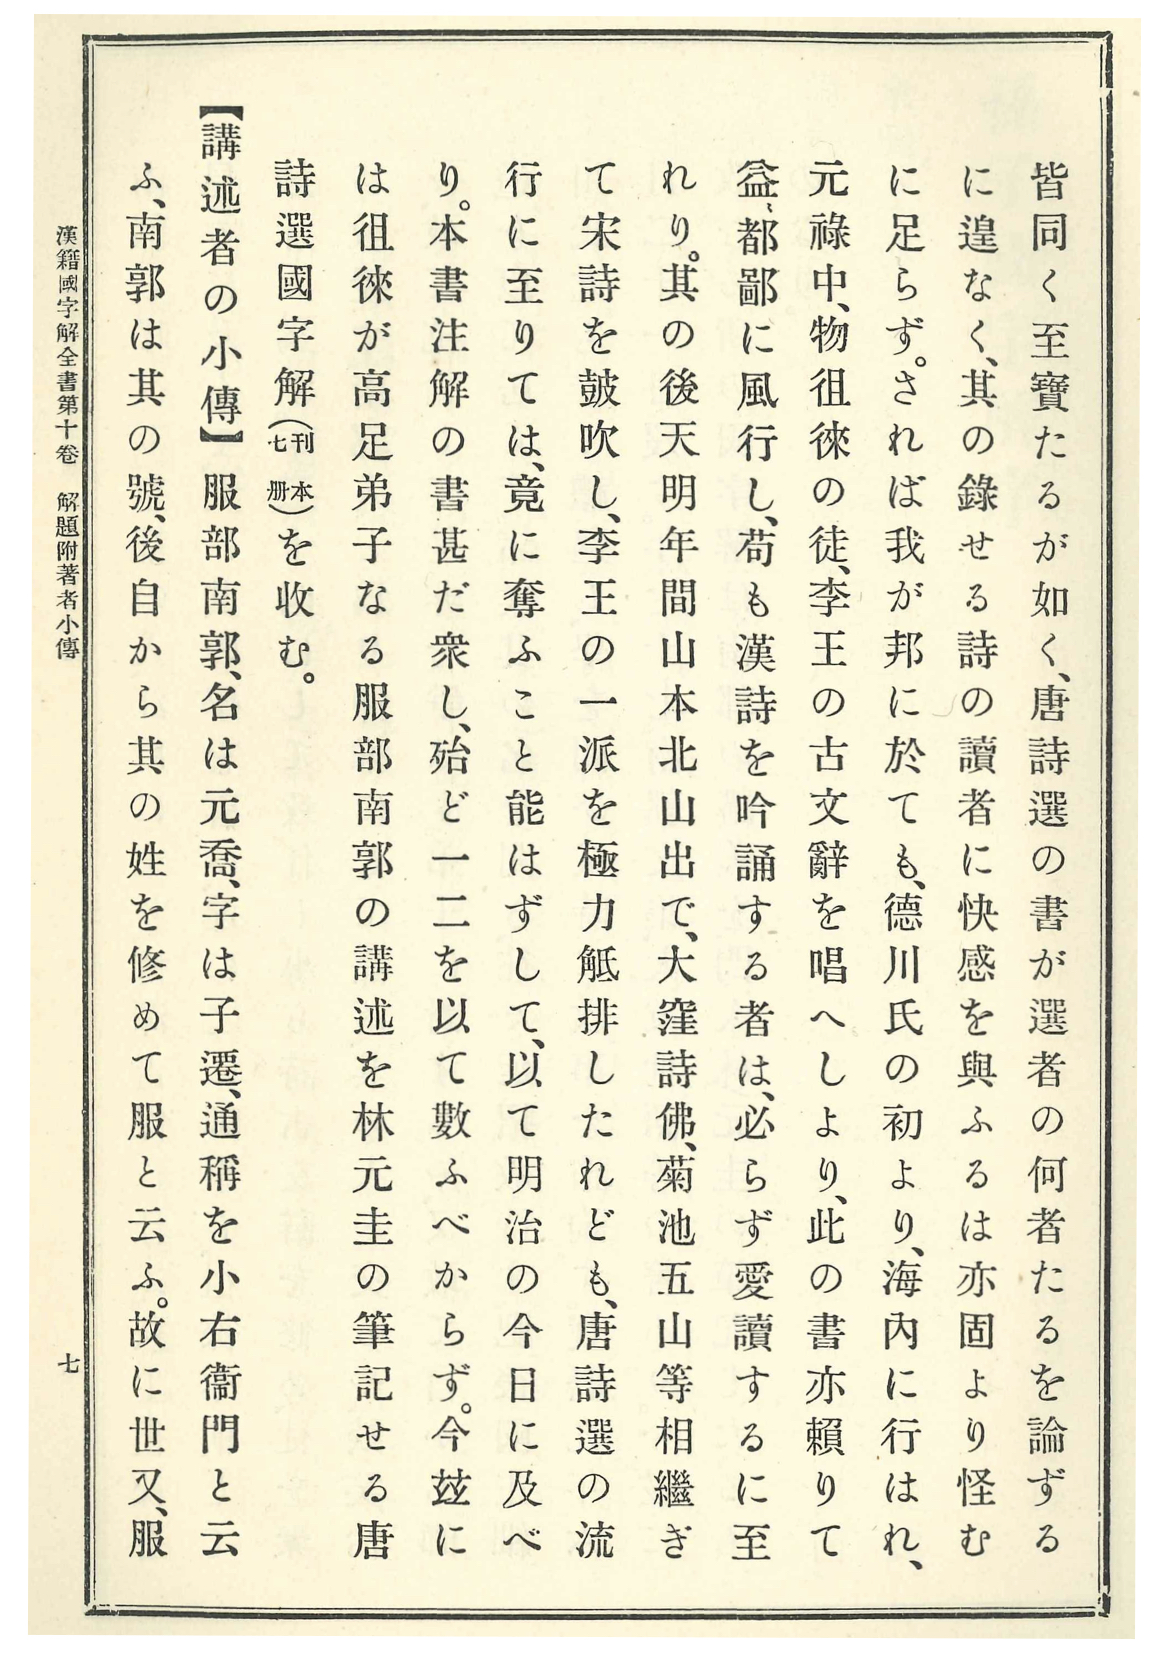 皆同く至寶たるが如く、唐詩選の書が選者の何者たるを論ずる
に遑なく、其の錄せる詩の讀者に快感を與ふるは亦固より怪む
に足らず。されば我が邦に於ても、德川氏の初より、海內に行はれ、
元祿中、物徂徠の徒、李王の古文辭を唱へしより、此の書亦賴りて
益〻都鄙に風行し、苟も漢詩を吟誦する者は、必らず愛讀するに至
れり。其の後天明年間山本北山出で、大窪詩佛、菊池五山等相繼ぎ
て宋詩を鼓吹し、李王の一派を極力觝排したれども、唐詩選の流
行に至りては、竟に奪ふこと能はずして、以て明治の今日に及べ
り。本書注解の書甚だ衆し、殆ど一二を以て數ふべからず。今玆に
は徂徠が高足弟子なる服部南郭の講述を林元圭の筆記せる唐
詩選國字解(刊本七册)を收む。
【講述者の小傳】服部南郭、名は元喬、字は子遷、通稱を小右衞門と云
ふ、南郭は其の號、後自から其の姓を修めて服と云ふ。故に世又、服
漢籍國字解全書第十卷　解題附著者小傳
七